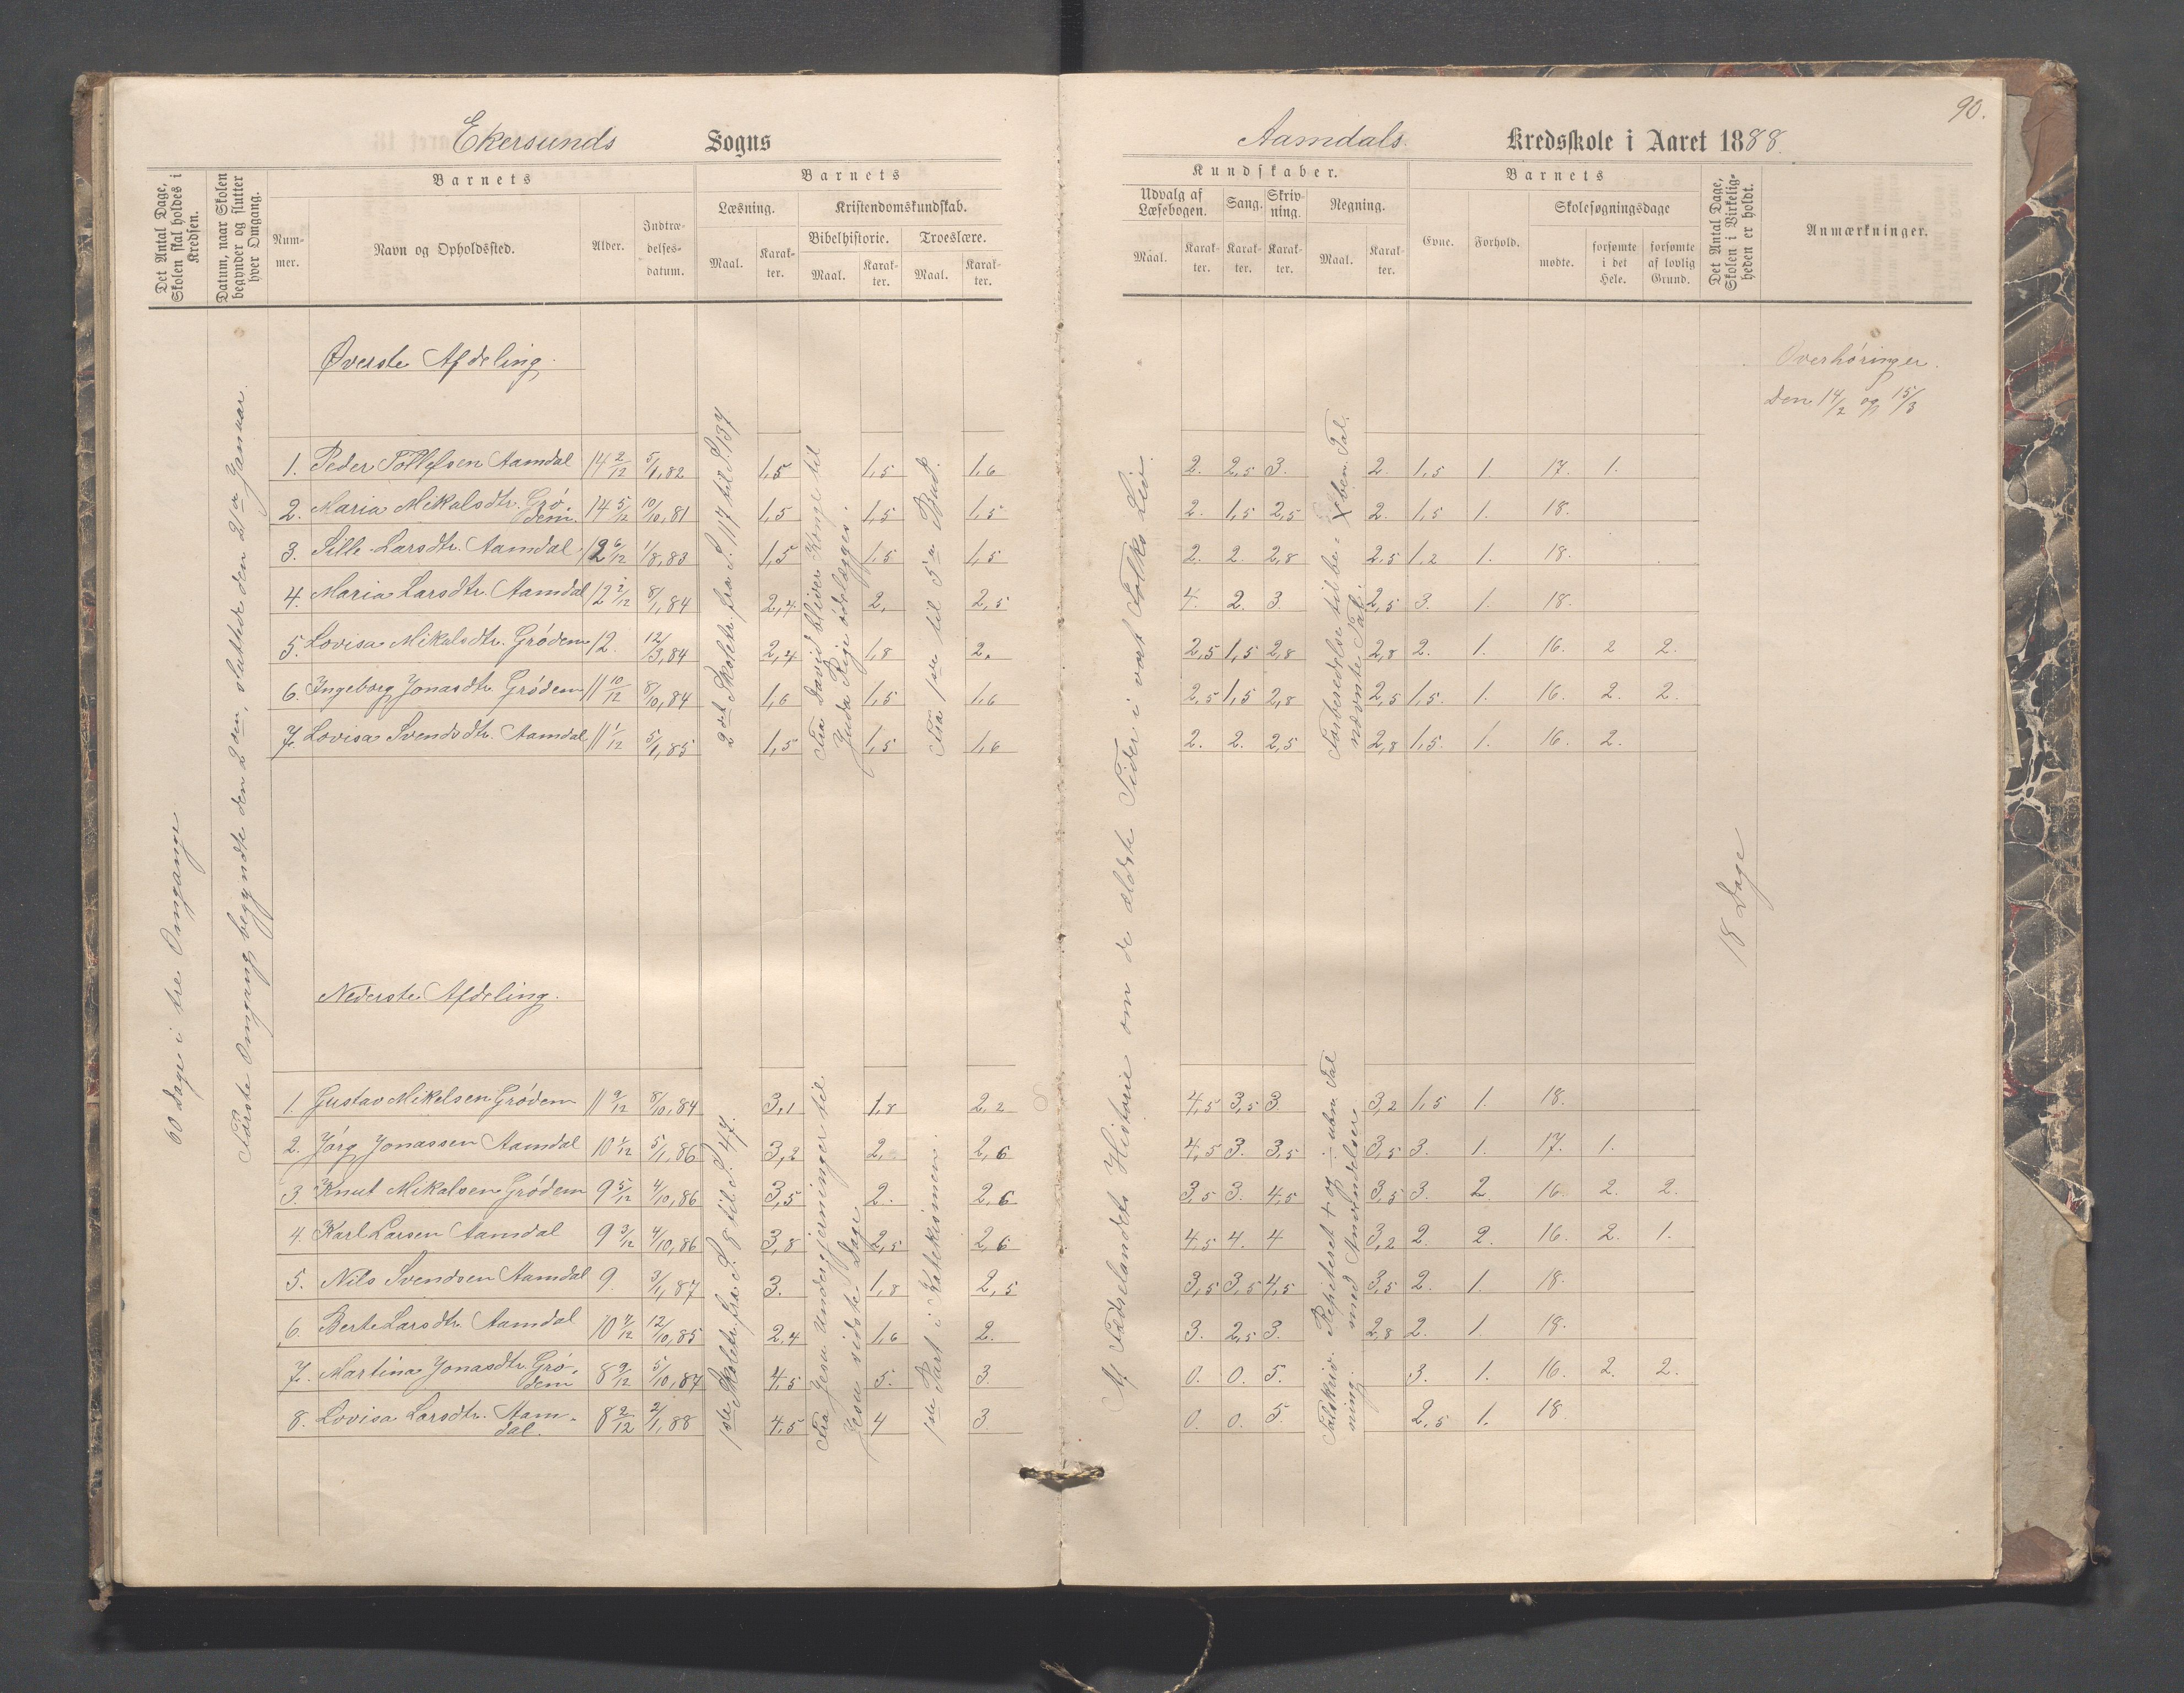 90.
Ekersunds Sogns
Aamdals Kredsskole i Aaret 1888.
Det Antal Dage, Skolen skal holdes i Kredsen.
Datum, naar Skolen begynder og slutter hver Omgang.
Barnets
Nummer.
Navn og Opholdssted.
Alder.
Indtrædelsesdatum.
Barnets
Læsning.
Maal.
Karakter.
Kristendomskundskab.
Bibelhistorie.
Maal.
Karakter.
Troeslære.
Maal.
Karakter.
Kundskaber.
Udvalg af Læsebogen.
Maal.
Karakter.
Sang.
Karakter.
Skrivning.
Karakter.
Regning.
Maal.
Karakter.
Barnets
Evne.
Forhold.
Skolesøgningsdage
mødte.
forsømte i det Hele.
forsømte af lovlig Grund.
Det Antal Dage, Skolen i Virkeligheden er holdt.
Anmærkninger.
60 Dage i tre Omgange
Første Omgang begyndte den 2den, sluttede den 2den Januar.
Øverste Afdeling.
Overhøringer
Den 14/2 og 15/3
1. Peder Tollefsen Aamdal 14 2/12 5/1,82 1,5 1,5 1,6 2. 2,5 3. 2. 1,5 1. 17. 1.
2. Maria Mikalsdtr. Grødem. 14 5/12 10/10,81 1,5 1,5 1,5 2. 1,5 2,5 2. 1,5 1. 18.
3. Sille Larsdtr. Aamdal 12 6/12 1/8,83 1,5 1,5 1,5 2. 2. 2,8 2,5 1,2 1. 18.
4. Maria Larsdtr. Aamdal 12 2/12 8/1,84 2,4 2. 2,5 4. 2. 3. 2,5 3. 1. 18.
5. Lovisa Mikalsdtr. Grødem 12. 12/3,84 2,4 1,8 2. 2,5 1,5 2,8 2,8 2. 1. 16. 2 2.
6. Ingeborg Jonasdtr. Grødem 11 10/12 8/10,84 1,6 1,5 1,6 2,5 1,5 2,8 2,5 1,5. 1. 16. 2. 2.
7. Lovisa Svendsdtr. Aamdal 11 1/12 5/1,85 1,5 1,5 1,6 2. 2. 2,5 2,8 1,5. 1. 16. 2.
2det Skoletr. fra S. 117 til S. 137
Fra David bliver Konge til Juda Rige ødelægges.
Fra 1ste til 5te Bud.
Af Fædrelandets Historie om de ældste Tider i vort Folks Liv.
Forberedelse til be- nævnte Tal. X ben. Tal.
18 Dage
Nederste Afdeling.
1. Gustav Mikalsen Grødem 11 9/12 8/10,84 3,1 1,8 2,2 4,5 3,5 3. 3,2 1,5 1. 18.
2. Jørg Jonassen Aamdal 10 2/12 5/1,86 3,2 2. 2,6 4,5 3. 3,5 3,5 3. 1. 17. 1.
3. Knut Mikalsen Grødem 9 5/12 4/10,86 3,5 2. 2,6 3,5 3. 4,5 3,5 3. 2 16. 2. 2.
4. Karl Larsen Aamdal 9 3/12 4/10,86 3,8 2,5 2,6 4,5 4. 4 3,2 2. 2. 16. 2. 1.
5. Nils Svendsen Aamdal 9. 3/1,87 3. 1,8 2,5 3,5 3,5 4,5 3,5 2. 1. 18.
6. Berte Larsdtr. Aamdal 10 4/12 12/10,85 2,4 1,6 2. 3. 2,5 3. 2,8 2. 1. 18.
7. Martina Jonasdtr. Grødem 8 9/12 5/10,87 4,5 5. 3. 0. 0. 5. 3. 1. 16. 2. 2.
8. Lovisa Larsdtr. Aamdal. 8 2/12 2/1,88 4,5 4 3. 0. 0. 5. 2,5 1. 18.
1ste Skoletr. fra S. 8 til S. 47.
Fra Jesu Undergjerninger til Jesu sidste Dage
1ste Part i Katekismen.
Talskriv- ning. Repeteret + og ÷ ubn. Tal med Anvendelser.